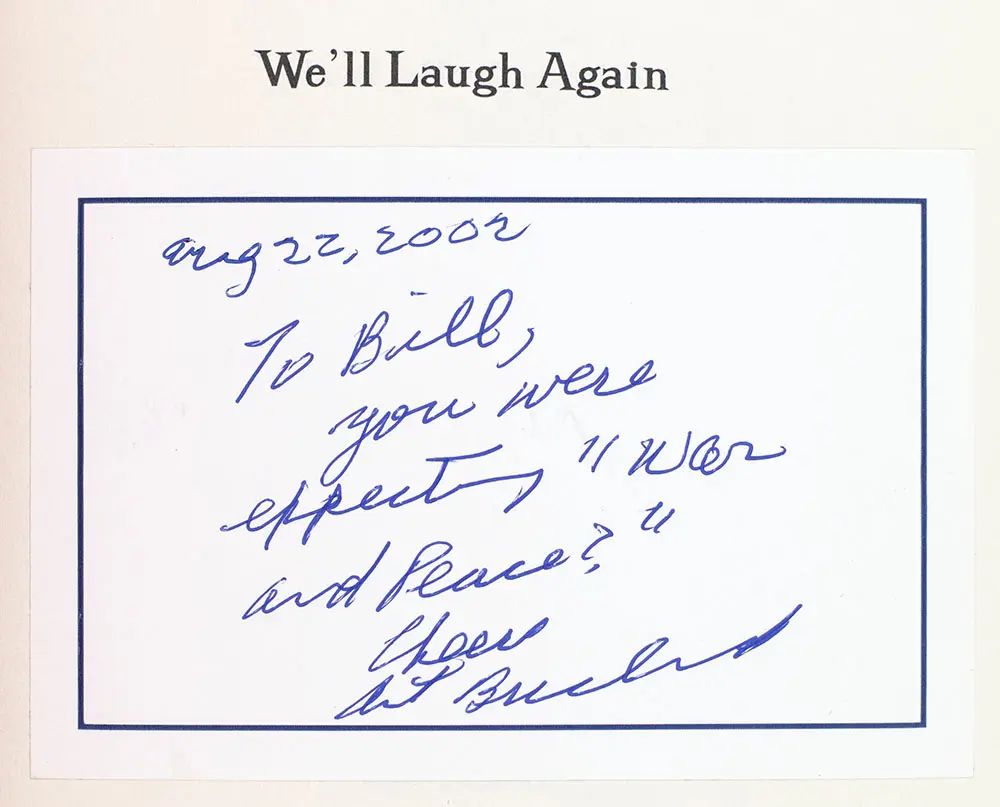 We'll Laugh Again
Aug 22, 2002
To Bill,
you were
expecting "War
and Peace?"
Cheers
Art Buchwald